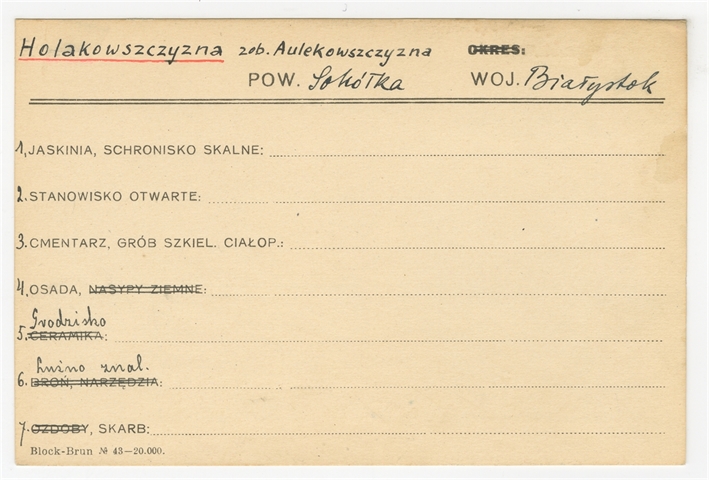 Holakowszczyzna zob. Aulekowszczyzna OKRES:
POW. Sokółka WOJ. Białystok
1, JASKINIA, SCHRONISKO SKALNE:
2. STANOWISKO OTWARTE:
3. CMENTARZ, GRÓB SZKIEL. CIAŁOP.:
4, OSADA, NASYPY ZIEMNE:
Grodzisko
5. CERAMIKA:
Luźno znal.
6. BROŃ, NARZĘDZIA:
7. OZDOBY, SKARB:
Block-Brun № 43—20.000.